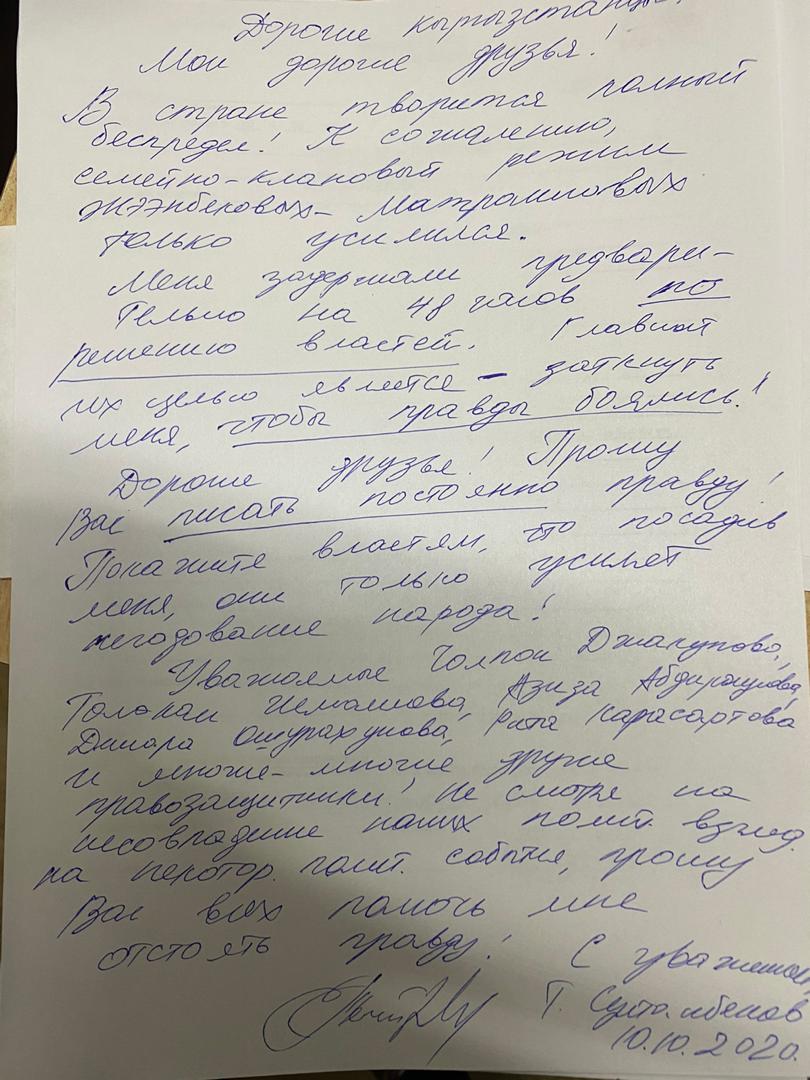 Дорогие кыргызстанцы!
Мои дорогие друзья!
В стране творится полный
беспредел! К сожалению,
семейно-клановый режим
Жээнбековых-Матраимовых
только усилился.
Меня задержали предвари-
тельно на 48 часов по
решению властей. Главной
их целью является - заткнуть
меня, чтобы правды боялись!
Дорогие друзья! Прошу
Вас писать постоянно правду!
Покажите властям, что посадив
меня, они только усилят
негодование народа!
Уважаемые Чолпон Джакупова,
Толекан Исмаилова, Азиза Абдирасулова,
Динара Ошурахунова, Рита Карасартова
и многие-многие другие
правозащитники! Не смотря на
несовпадение наших полит. взгляд.
на некотор. полит. события, прошу
Вас всех помочь мне
отстоять правду! С уважением,
Т. Султанбеков
10.10.2020.